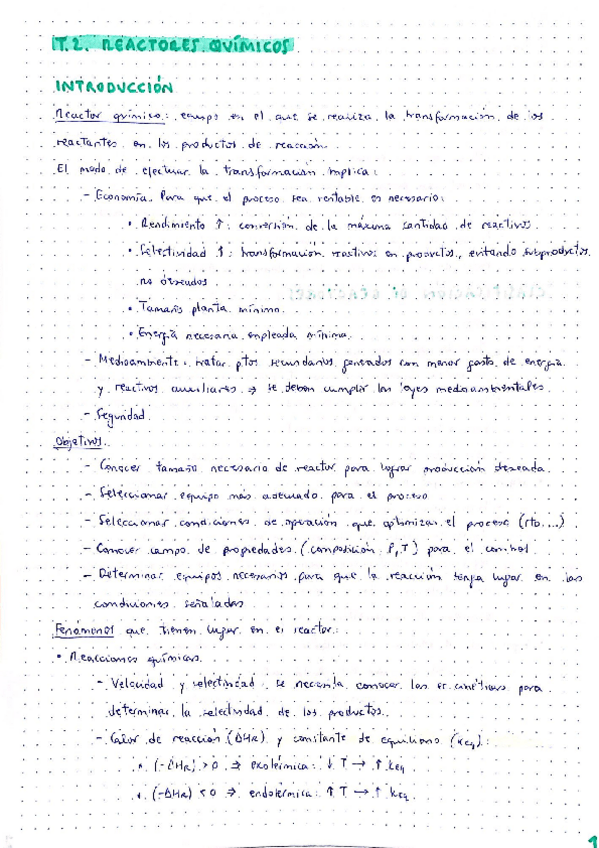 T.2. REACTORES QUÍMICOS
INTRODUCCIÓN
Reactor químico: equipo en el que se realiza la transformación de los
reactantes en los productos de reacción
El modo de efectuar la transformación implica:
- Economía. Para que el proceso sea rentable es necesario:
• Rendimiento ↑: conversión de la máxima cantidad de reactivos
• Selectividad ↑: transformación reactivos en productos, evitando subproductos
no deseados
• Tamaño planta mínimo
• Energía necesaria empleada mínima
- Medioambiente: tratar ptos secundarios generados con menor gasto de energía
y reactivos auxiliares → se deben cumplir las leyes medioambientales
- Seguridad
Objetivos.
- Conocer tamaño necesario de reactor para lograr producción deseada
- Seleccionar equipo más adecuado para el proceso
- Seleccionar condiciones de operación que optimizan el proceso (rto...)
- Conocer campo de propiedades (composición, P, T) para el control
- Determinar equipos necesarios para que la reacción tenga lugar en las
condiciones señaladas
Fenómenos que tienen lugar en el reactor:
• Reacciones químicas
- Velocidad y selectividad: se necesita conocer las ec. cinéticas para
determinar la selectividad de los productos.
- Calor de reacción (ΔHR) y constante de equilibrio (Keq):
* (-ΔHR) > 0 ⇒ exotérmica: ↓ T → ↑ Keq
* (-ΔHR) < 0 ⇒ endotérmica: ↑ T → ↑ Keq
1